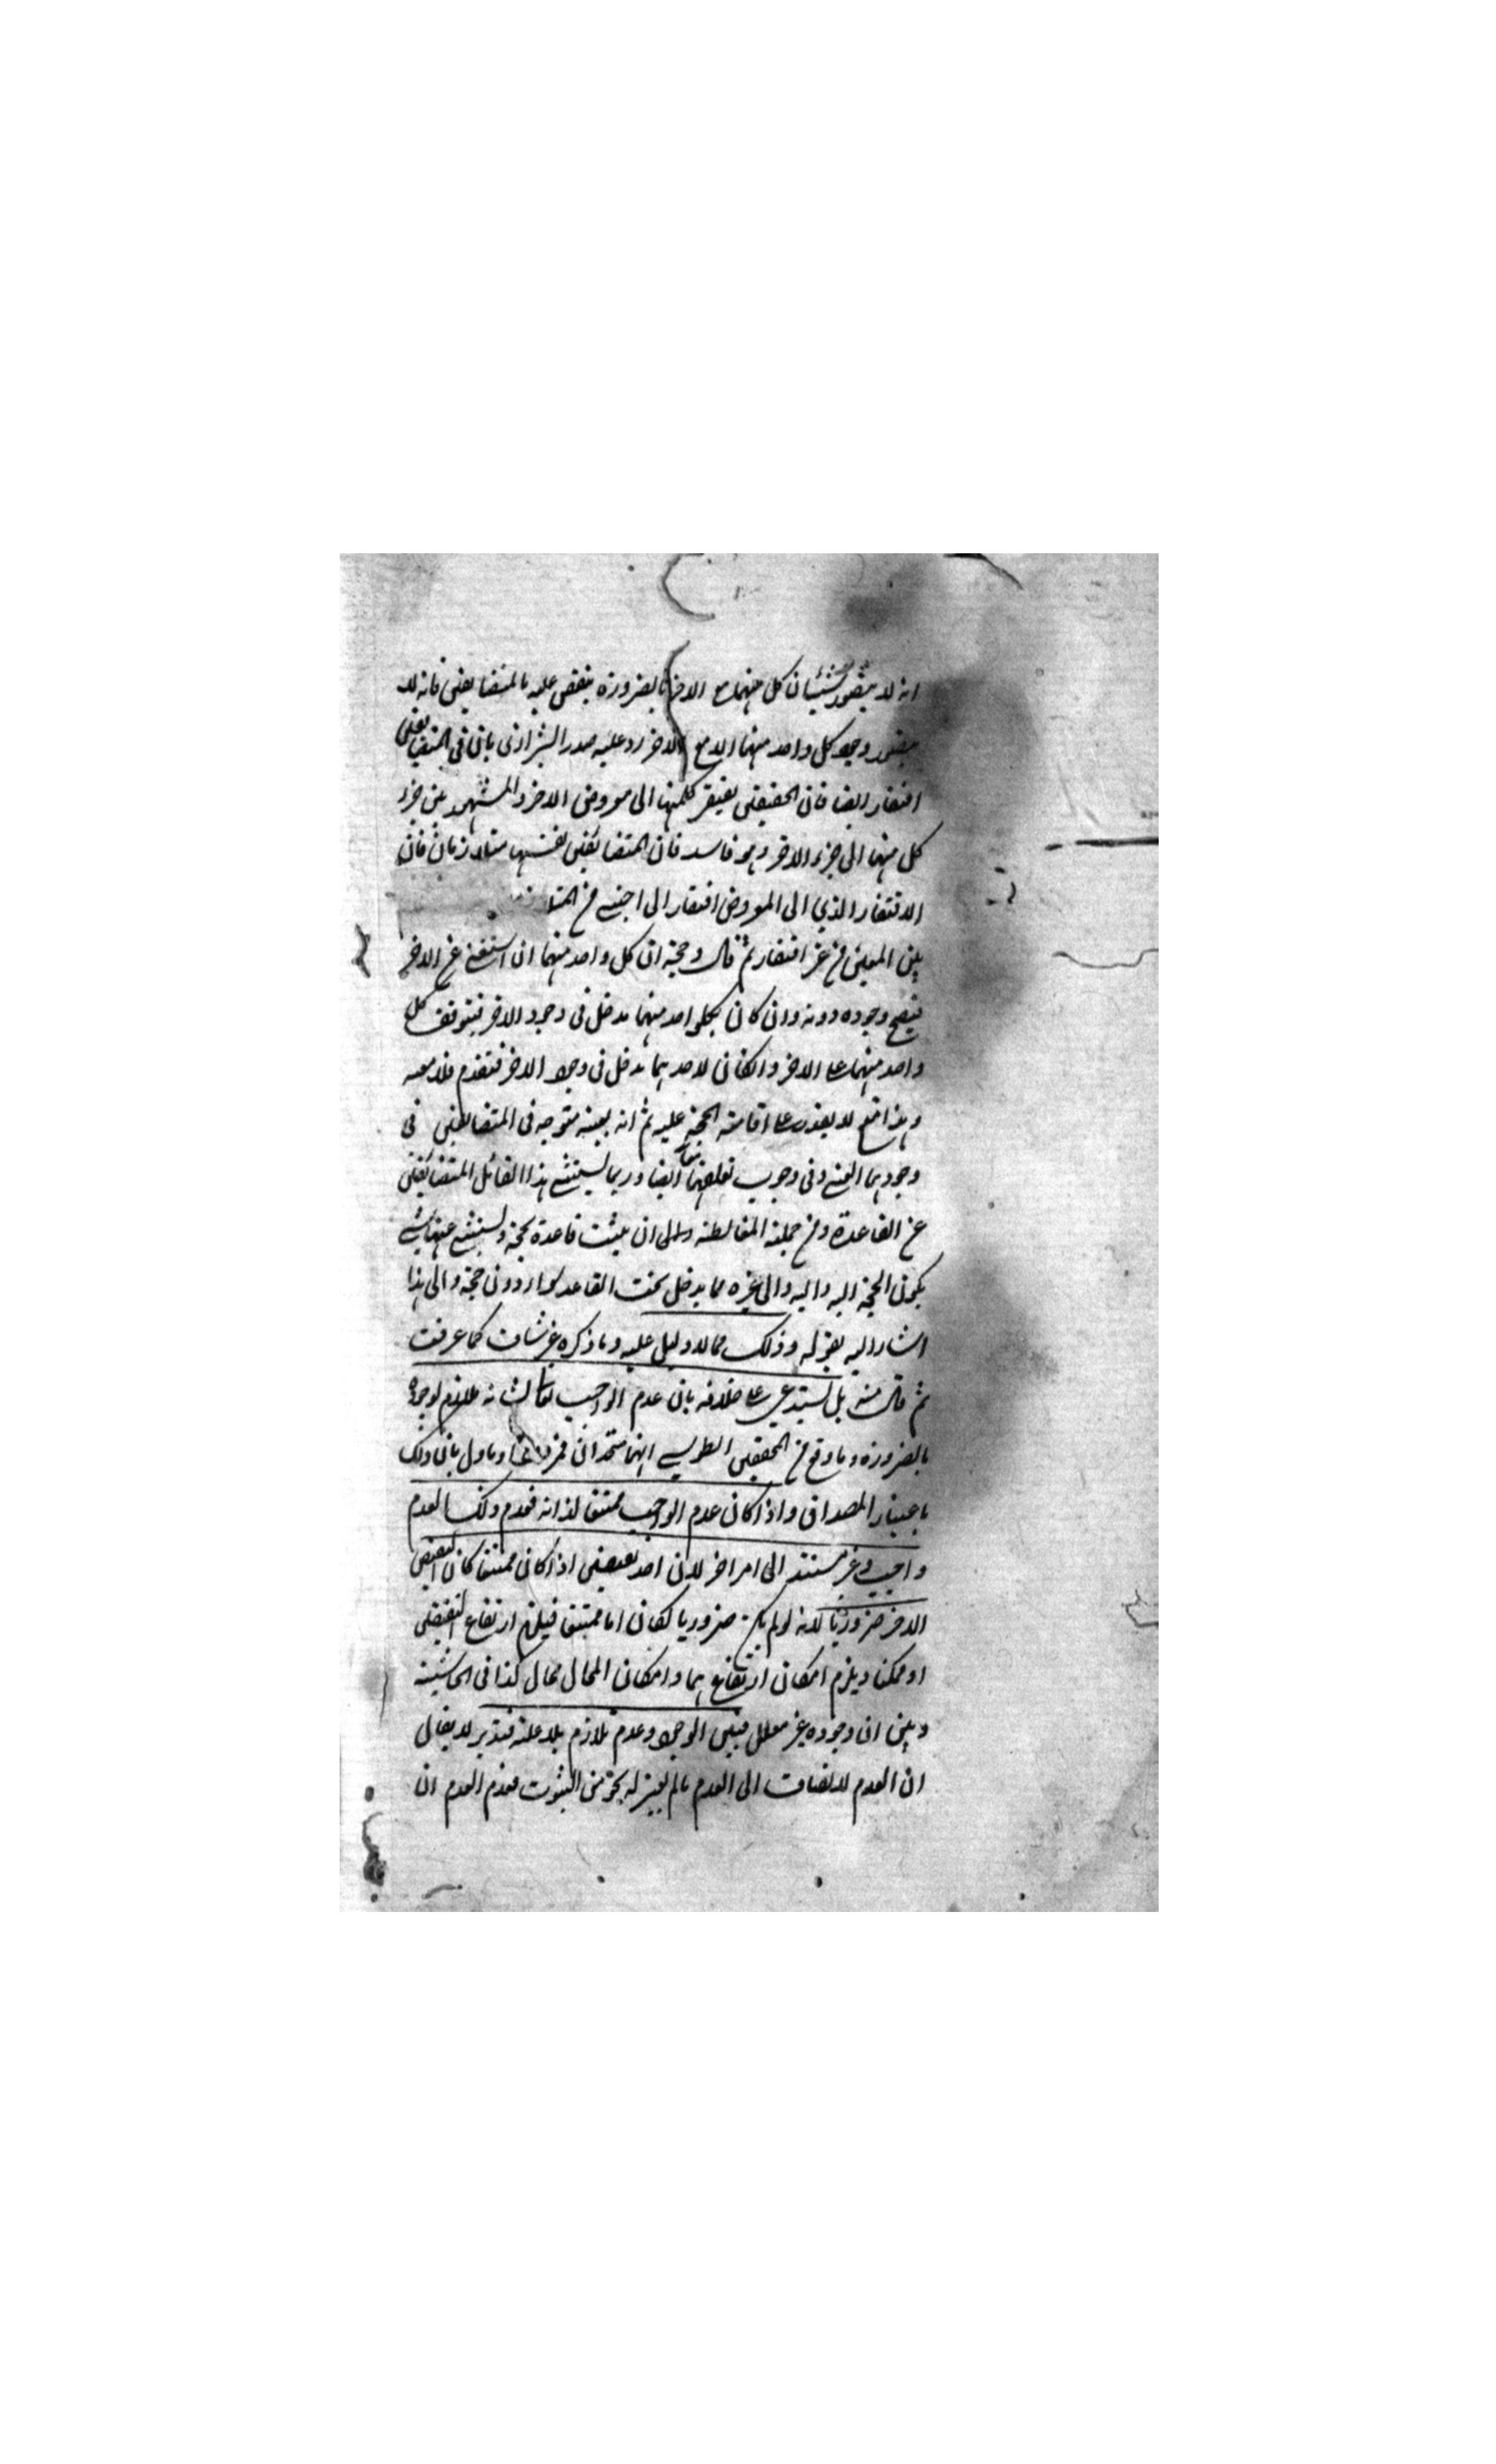 انه لا يتصور شيئان كل منهما مع الاخر بالضرورة ينقض عليه بالمتضايفين فانه لا
يتصور وجود كل واحد منهما الا مع الاخر رد عليه صدر الشيرازى بان فى المتضايفين
افتقار ايضا فان الحقيقى يفتقر كلمنهما الى معروض الاخر والمشهور بين جزء
كل منهما الى جزء الاخر وهو فاسد فان المتضائفين نفسهما متلازمان فان
الافتقار الذي الى المعروض افتقار الى اجنبى من
بين المعنيين من غير افتقار ثم قال وحجة ان كل واحد منهما ان استغنى عن الاخر
فيصح وجوده دونه وان كان لكلواحد منهما مدخل فى وجود الاخر فيتوقف كل
واحد منهما على الاخر وانكان لاحدهما مدخل فى وجود الاخر فتقدم فلا معية
وهذا لا يقدر على اقامة الحجة عليه ثم انه بعينه متوجه فى المتضايفين فى
وجودهما العينى وفى وجوب تعلقهما معا ايضا وربما يستثنى هذا القائل المتضائفين
عن القاعدة ومن جملة المغالطة ان يثبت قاعدة بحجة ويستثنى عنها شىء
يكون الحجة اليه واليه والى غيره مما يدخل تحت القاعدة سواء دون حجة والى هذا
اشار اليه بقوله وذلك مما لا دليل عليه وما ذكره غير شاف كما عرفت
ثم قال منه بل يستدعى على خلافه بان عدم الواجب تعالى شانه ملازم لوجوده
بالضرورة وما وقع من المحقق الطوسى انهما متحدان وماول بان ذلك
باعتبار المصداق واذا كان عدم الواجب ممتنعا لذاته فعدم ذلك العدم
واجب وغير مستند الى امر اخر لان احد نقيضين اذا كان ممتنعا كان النقيض
الاخر ضروريا لانه لو لم يكن ضروريا لكان اما ممتنعا فيلزم ارتفاع النقيضين
او ممكنا ويلزم امكان ارتفاعهما وامكان المحال محال كذا فى الحاشية
وبين ان وجوده غير معلل فبين الوجود وعدم تلازم بلا علة فتدبر لا يقال
ان العدم لا يضاف الى العدم ما لم يعتبر له نحو من الثبوت فعدم العدم ان